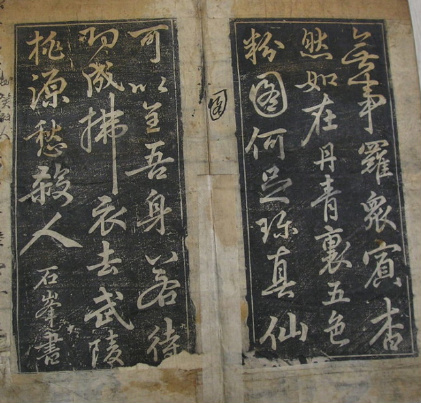 無事羅衆賓杳
然如在丹青裏五色
粉圖何足珍真仙
可以全吾身若待
功成拂衣去武陵
桃源愁殺人
石峯書